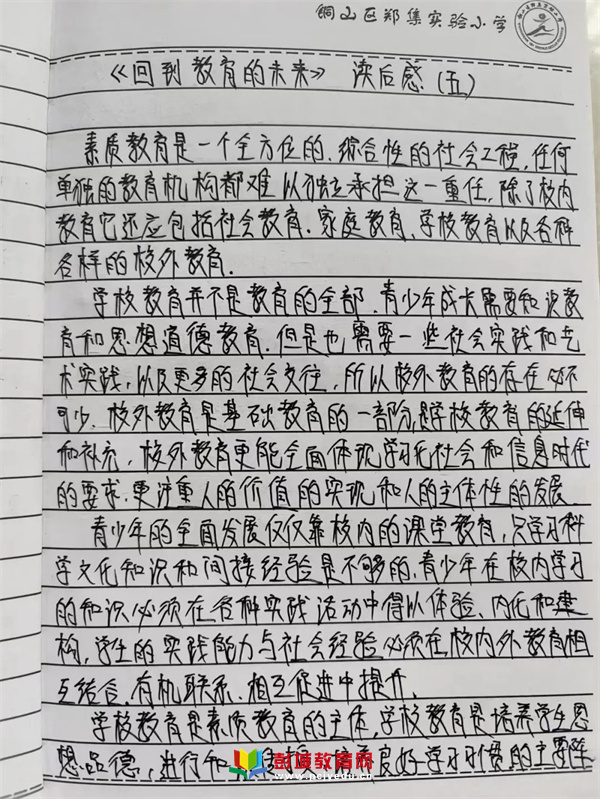 铜山区郑集实验小学
《回到教育的未来》 读后感(五)
素质教育是一个全方位的、综合性的社会工程,任何
单独的教育机构都难以独立承担这一重任,除了校内
教育它还应包括社会教育、家庭教育、学校教育以及各种
各样的校外教育.
学校教育并不是教育的全部,青少年成长需要知识教
育和思想道德教育,但是也需要一些社会实践和艺
术实践,以及更多的社会交往,所以校外教育的存在必不
可少.校外教育是基础教育的一部分,是学校教育的延伸
和补充,校外教育更能全面体现学习化社会和信息时代
的要求,更注重人的价值的实现和人的主体性的发展
青少年的全面发展仅仅靠校内的课堂教育,只学习科
学文化知识和间接经验是不够的,青少年在校内学习
的知识必须在各种实践活动中得以体验、内化和建
构,学生的实践能力与社会经验必须在校内外教育相
互结合、有机联系、相互促进中提升.
学校教育是素质教育的主体,学校教育是培养学生思
想品德,进行知 培养良好学习习惯的主要阵
彭城教育网